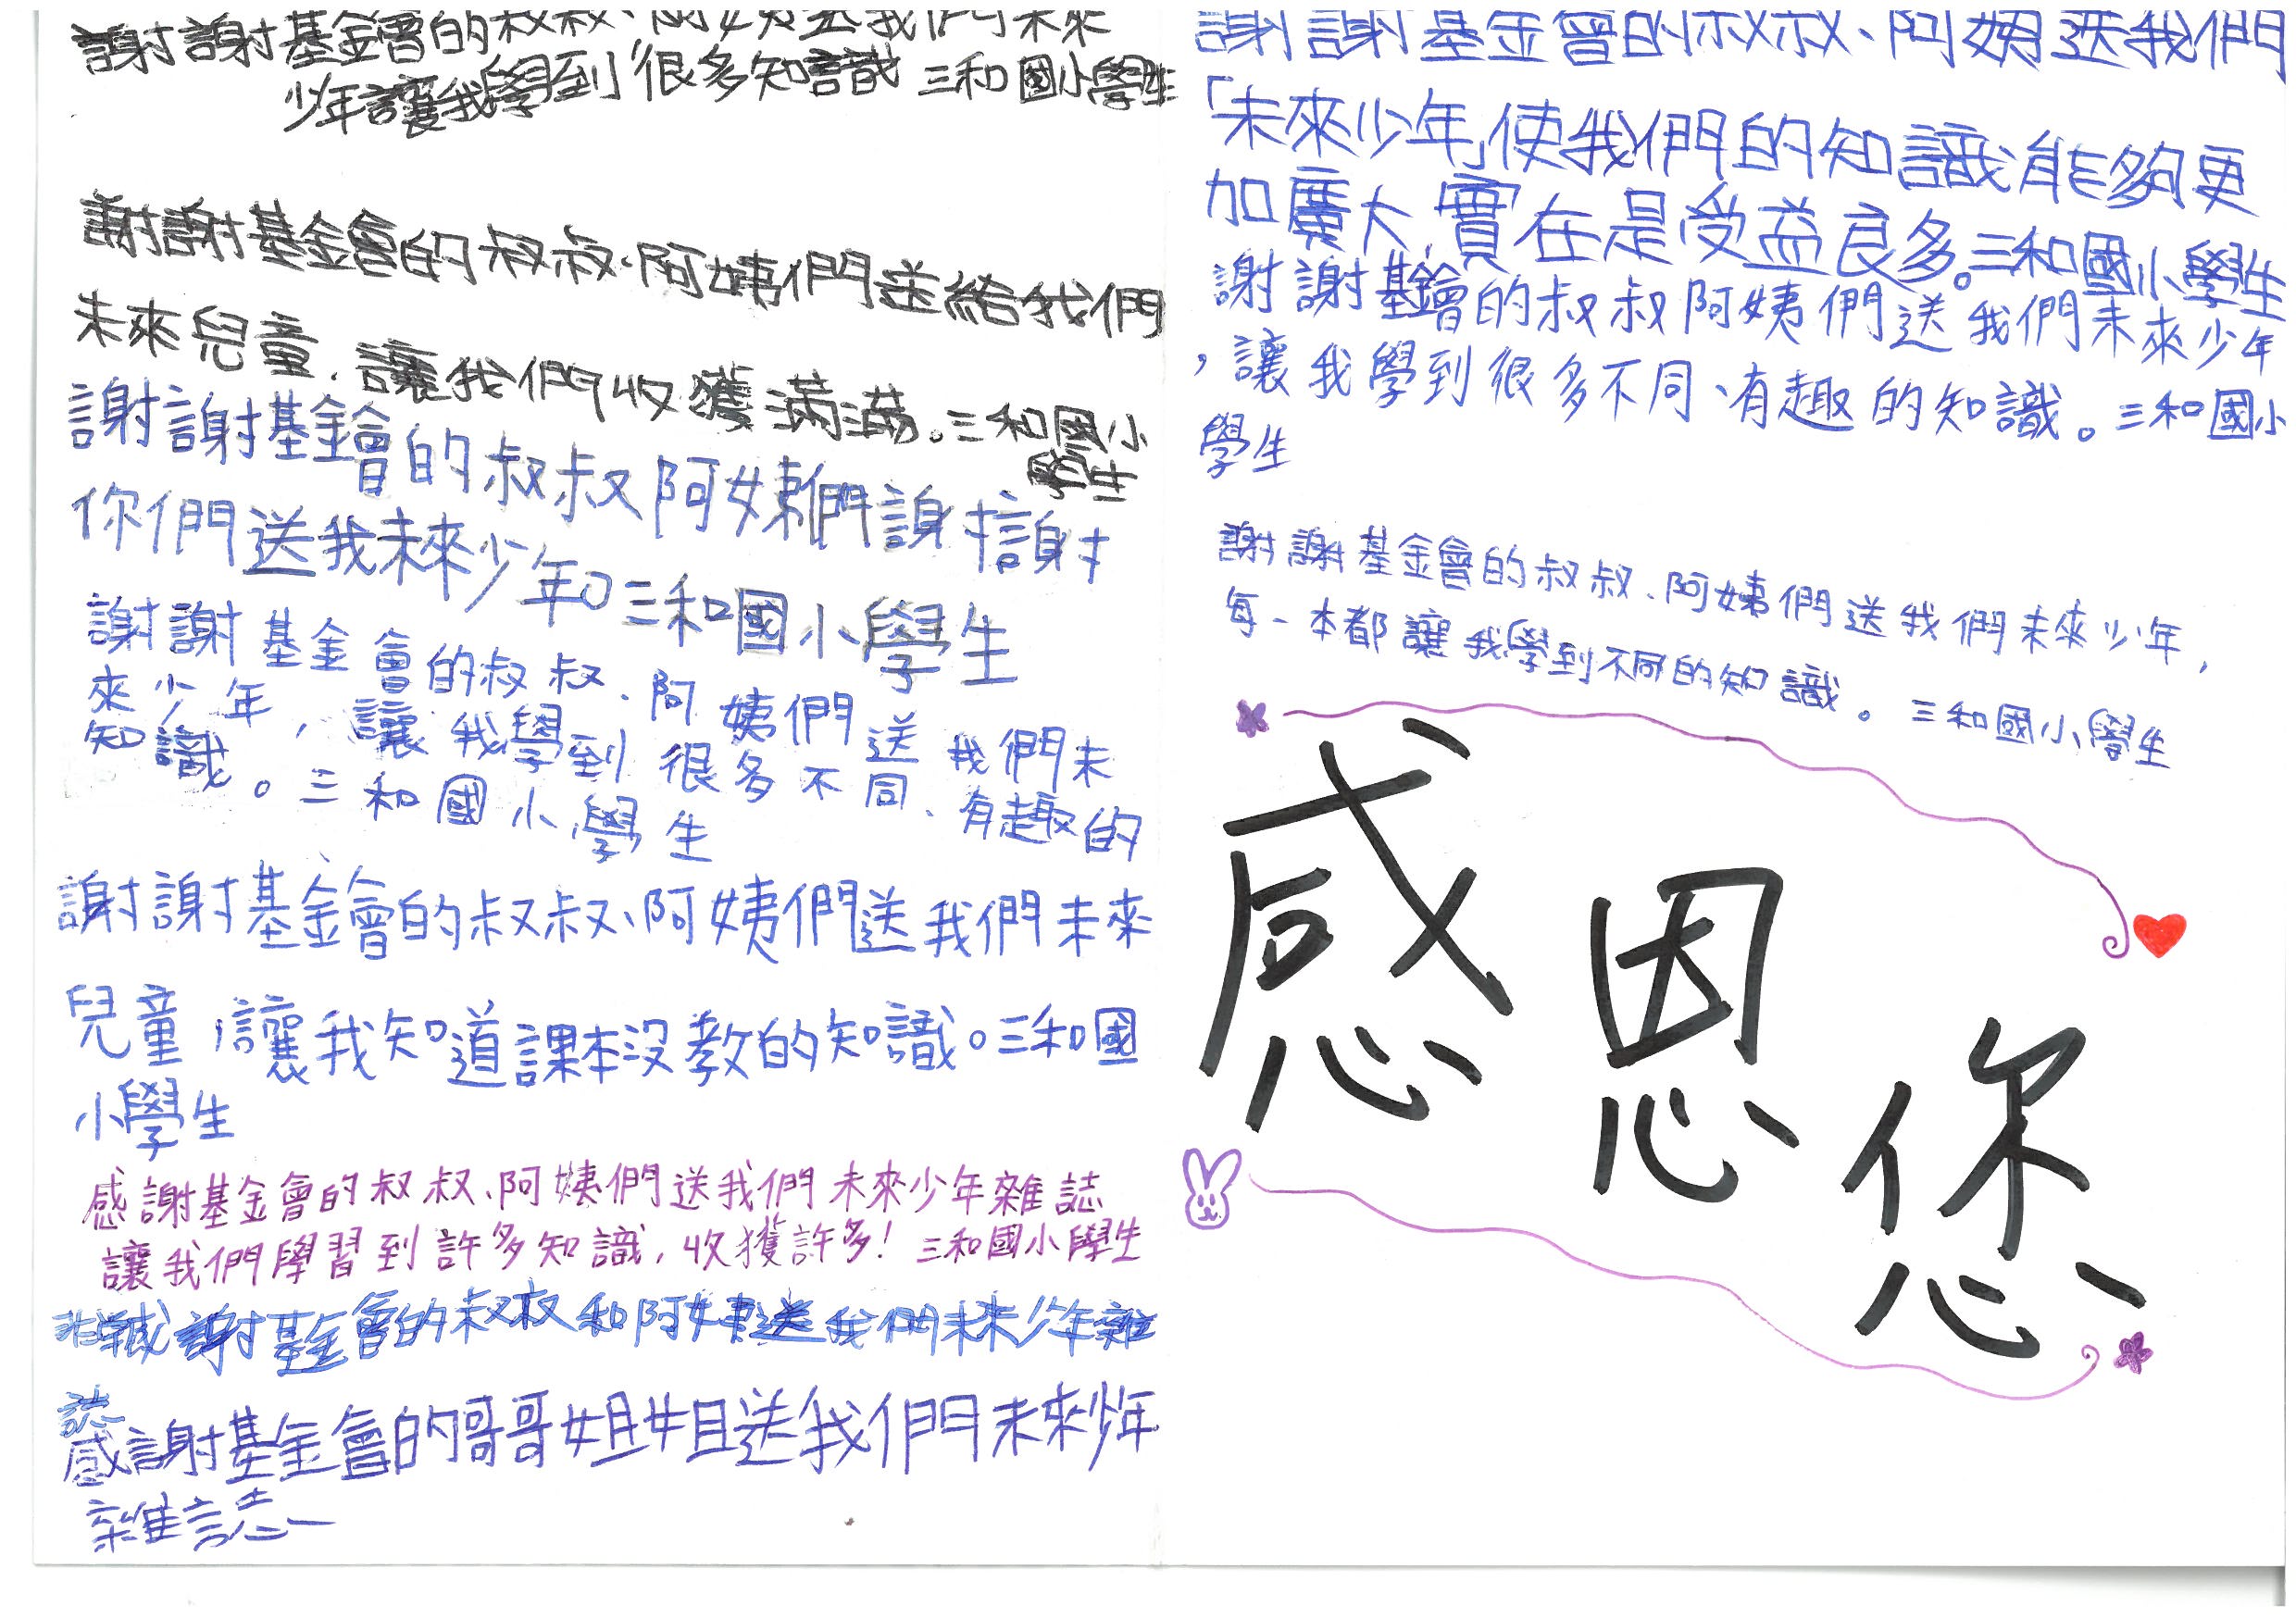 謝謝基金會的叔叔、阿姨送我們未來
少年讓我學到很多知識 三和國小學生
謝謝基金會的叔叔、阿姨們送給我們
未來兒童,讓我們收獲滿滿。三和國小
學生
謝謝基金會的叔叔阿姨們謝謝
你們送我未來少年。三和國小學生
謝謝基金會的叔叔、阿姨們送我們未
來少年,讓我學到很多不同、有趣的
知識。三和國小學生
謝謝基金會的叔叔、阿姨們送我們未來
兒童,讓我知道課本沒教的知識。三和國
小學生
感謝基金會的叔叔、阿姨們送我們未來少年雜誌
讓我們學習到許多知識,收獲許多!三和國小學生
非常感謝基金會的叔叔和阿姨送我們未來少年雜
誌
感謝基金會的哥哥姐姐送我們未來少年
雜誌
謝謝基金會的叔叔、阿姨送我們
「未來少年」使我們的知識能夠更
加廣大,實在是受益良多。三和國小學生
謝謝基金會的叔叔阿姨們送我們未來少年
,讓我學到很多不同、有趣的知識。三和國小
學生
謝謝基金會的叔叔、阿姨們送我們未來少年,
每一本都讓我學到不同的知識。三和國小學生
感恩您